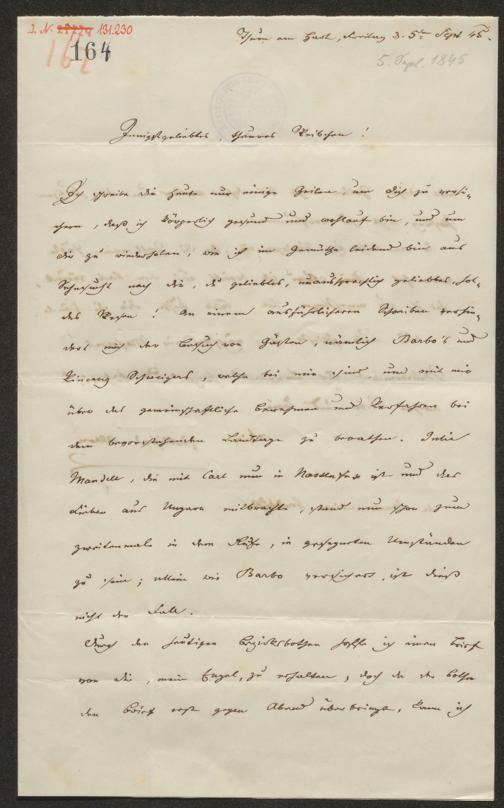 I. N. 131.230
164
Thurn am Hart, Freitag d. 5ten Sept 45.
5. Sept. 1845
Innigstgeliebtes, theures Weibchen!
Ich schreibe dir heute nur einige Zeilen, um dich zu versi-
chern, daß ich körperlich gesund und wohlauf bin, und um
dir zu wiederholen, wie ich im Gemüthe leidend bin aus
Sehnsucht nach dir, du geliebtes, unaussprechlich geliebtes, hol-
des Wesen! An einem ausführlicheren Schreiben verhin-
dert mich der Besuch von Gästen, nämlich Barbo's und
Vincenz Schweigers, welche bei mir sind, um mit mir
über das gemeinschaftliche Benehmen und Verfahren bei
dem bevorstehenden Landtage zu berathen.
Mandell, die mit Carl nun in Nassenfuß ist und das
aus Ungarn mitbrachte, stand nun schon zum
zweitenmale in dem Rufe, in gesegneten Umständen
zu sein; allein wie Barbo versichert, ist dieß
nicht der Fall.
Durch den heutigen Bezirksboten hoffe ich einen Brief
von dir, mein Engel, zu erhalten, doch da der Bothe
den Brief erst gegen Abend überbringt, kann ich